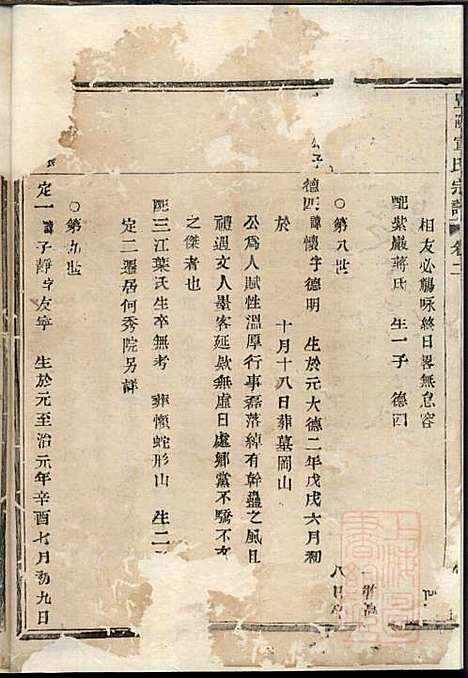 宣氏宗譜 卷二
相友必觴咏終日畧無怠容
配紫巖蔣氏 生一子 德四
○第八世
公子 德四 諱懷字德明 生於元大德二年戊戌六月初
八日
於 十月十八日葬墓岡山
公為人賦性溫厚行事磊落綽有幹蠱之風且
禮遇文人墨客延欵無虛日處鄉黨不驕不
之傑者也
配三江葉氏生卒無考 葬懷蛇形山 生二
定二遷居何秀院另詳
○第九世
定一 諱 子靜字友寧 生於元至治元年辛酉七月初九日